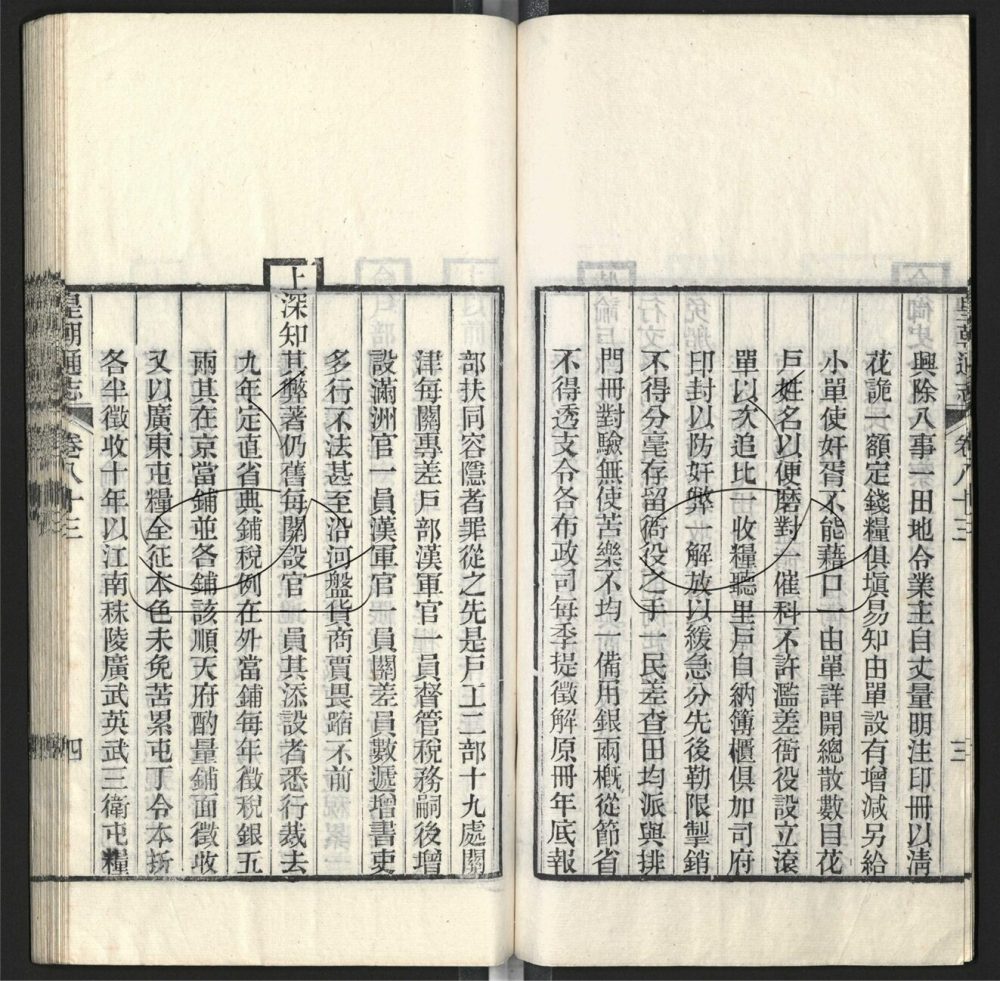 皇朝通志 卷八十三 三
興除八事一田地令業主自丈量明注印冊以清
花詭一額定錢糧俱填易知由單設有增減另給
小單使奸胥不能藉口一由單詳開總散數目花
戶姓名以便磨對一催科不許濫差衙役設立滾
單以次追比一收糧聽里戶自納簿櫃俱加司府
印封以防奸弊一解放以緩急分先後勒限掣銷
不得分毫存留衙役之手一民差查田均派與排
門冊對驗無使苦樂不均一備用銀兩概從節省
不得透支令各布政司每季提徵解原冊年底報
部扶同容隱者罪從之先是戶工二部十九處關
津每關專差戶部漢軍官一員督管稅務嗣後增
設滿洲官一員漢軍官一員關差員數遞增書吏
多行不法甚至沿河盤貨商賈畏䠂不前
上深知其弊著仍舊每關設官一員其添設者悉行裁去
九年定直省典鋪稅例在外當鋪每年徵稅銀五
兩其在京當鋪並各鋪該順天府酌量鋪面徵收
又以廣東屯糧全征本色未免苦累屯丁令本折
各半徵收十年以江南秣陵廣武英武三衛屯糧
皇朝通志 卷八十三 四